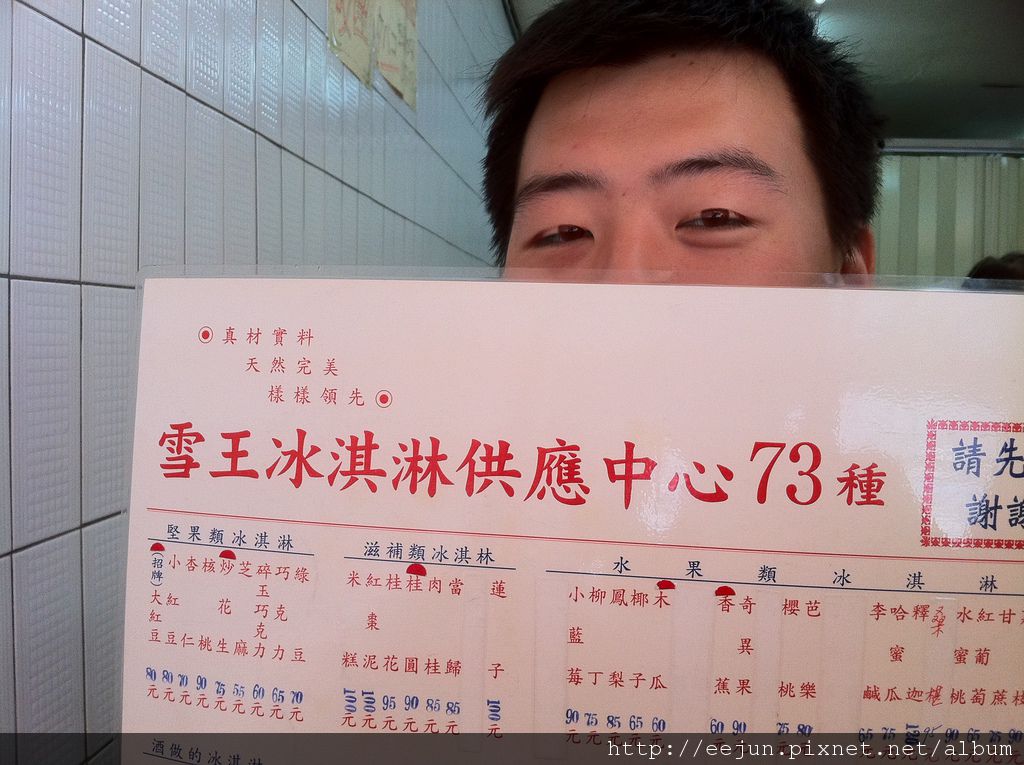 真材實料
天然完美
樣樣領先
雪王冰淇淋供應中心73種
請先
謝謝
堅果類冰淇淋
(招牌)大紅豆 80元
小紅豆 80元
杏仁 70元
核桃 90元
炒花生 75元
芝麻 55元
碎玉巧克力 60元
巧克力 65元
綠豆 70元
滋補類冰淇林
米糕 100元
紅棗泥 100元
桂花 95元
桂圓 90元
肉桂 85元
當歸 85元
蓮子 100元
水果類冰淇淋
小藍莓 90元
柳丁 75元
鳳梨 85元
椰子 65元
木瓜 60元
香蕉 60
奇異果 90
櫻桃 75
芭樂 80
李鹹 65
哈蜜瓜 75
釋迦
桑椹 95
水蜜桃 90
紅葡萄 65
甘蔗
酒做的冰淇淋
http://eejun.pixnet.net/album